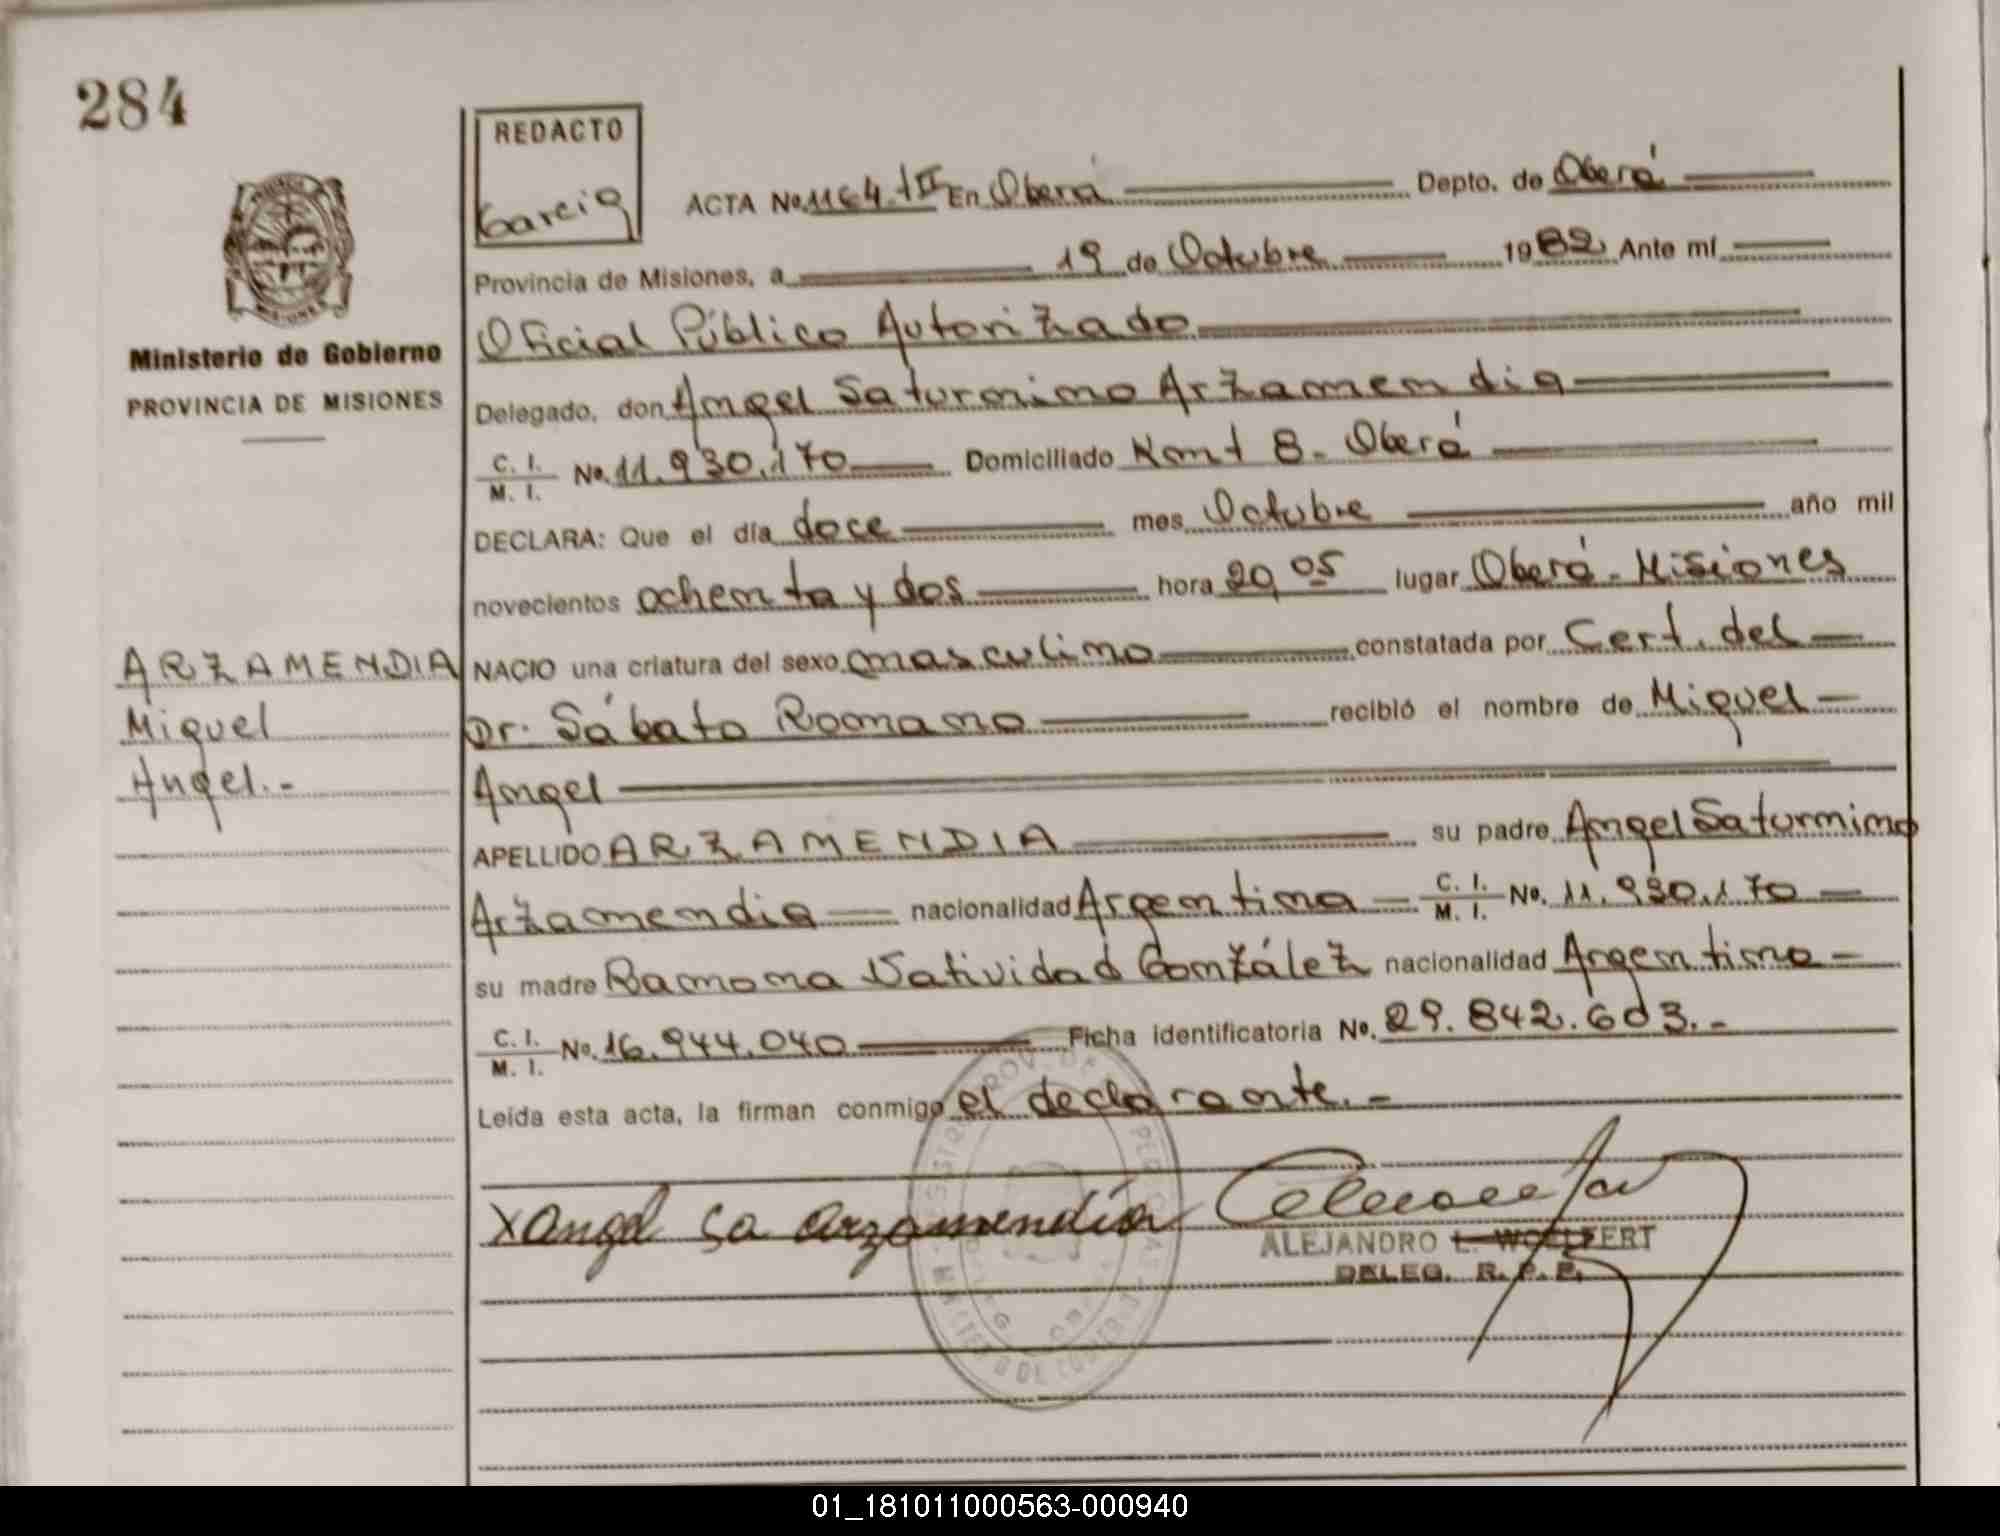 284
REDACTO
Garcia
ACTA No. 1164. tII En Oberá Depto. de Oberá
Provincia de Misiones, a 19 de Octubre 1982 Ante mí
Oficial Público Autorizado
Ministerio de Gobierno
PROVINCIA DE MISIONES
Delegado, don Angel Saturnino Arzamendia
C. I. M. I. No. 11.930.170 Domiciliado Kmt 8. Oberá
DECLARA: Que el día doce mes Octubre año mil
novecientos ochenta y dos hora 20,05 lugar Oberá - Misiones
ARZAMENDIA
Miguel
Angel.-
NACIO una criatura del sexo masculino constatada por Cert. del
Dr. Sábato Romano recibió el nombre de Miguel
Angel
APELLIDO ARZAMENDIA su padre Angel Saturnino
Arzamendia nacionalidad Argentina C. I. M. I. No. 11.930.170
su madre Ramona Natividad González nacionalidad Argentina
C. I. M. I. No. 16.944.040 Ficha identificatoria No. 29.842.603.-
Leída esta acta, la firman conmigo el declarante.-
X Angel Sa arzamendia
ALEJANDRO L. WOELFERT
DELEG. R. P. P.
01_181011000563-000940